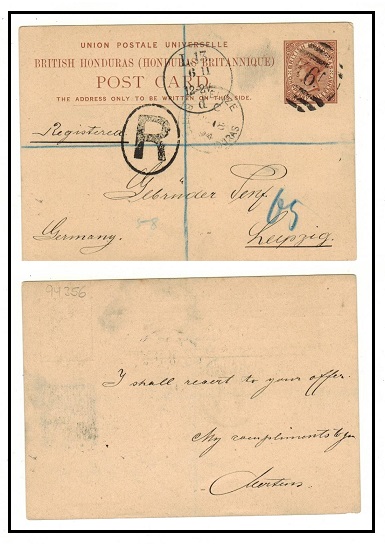 UNION POSTALE UNIVERSELLE
BRITISH HONDURAS (HONDURAS BRITANNIQUE)
POST CARD
THE ADDRESS ONLY TO BE WRITTEN ON THIS SIDE.
Registered
R
Gebrüder Senf.
Germany.
Leipzig.
94256
I shall revert to your offer.
My compliments to you
Mertens